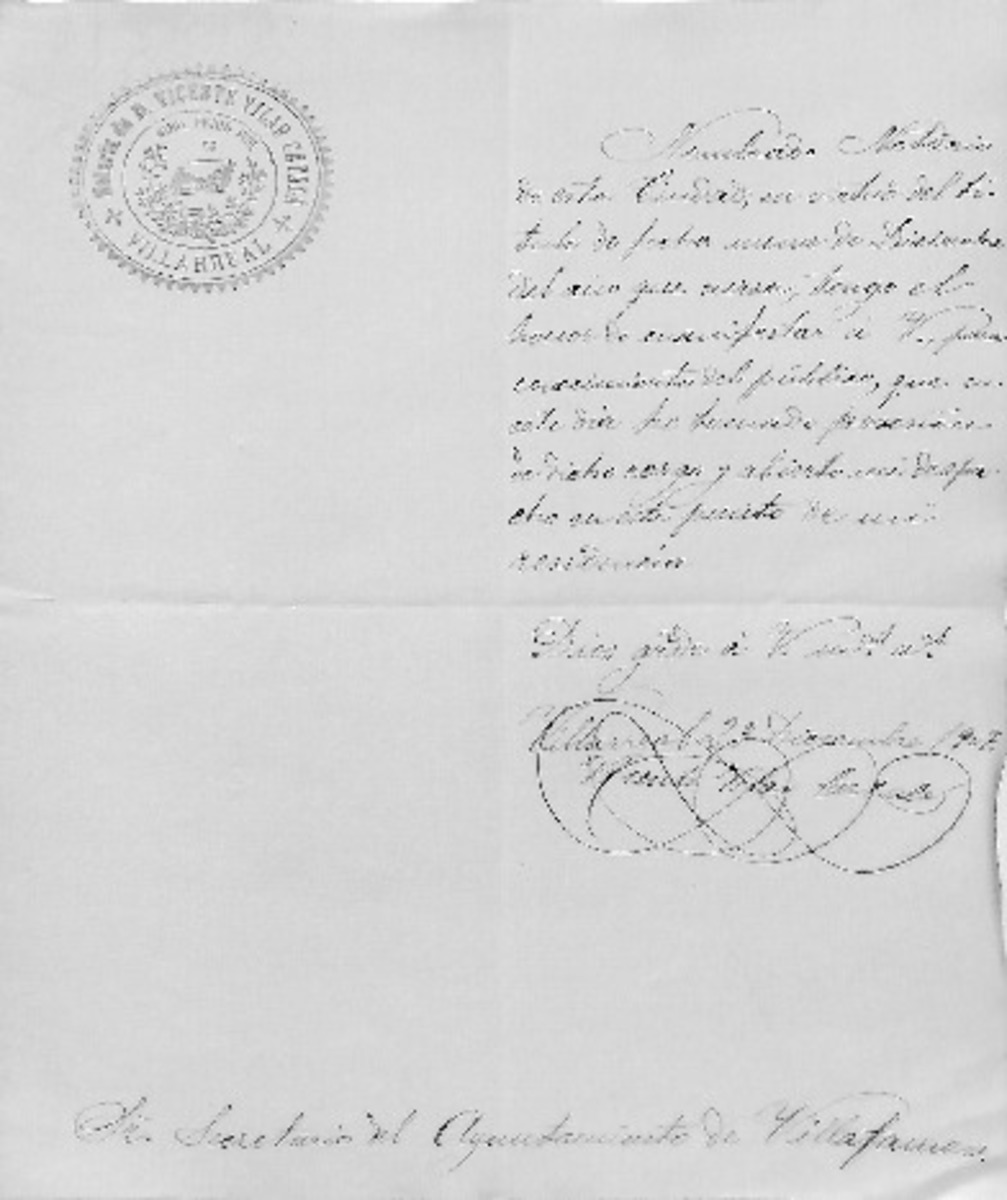 Notaría de D. VICENTE VILAR
VILLARREAL
Nombrado Notario
de esta Ciudad, en virtud del tí-
tulo de fecha nueve de Diciembre
del año que cursa, tengo el
honor de manifestar á V., para
conocimiento del público, que en
este dia he tomado posesión
de dicho cargo y abierto mi despa-
cho en este punto de mi
residencia
Dios güde á V. m.s a.s
Villarreal 23 Diciembre 1907
Vicente Vilar
Sr. Secretario del Ayuntamiento de Villafames.